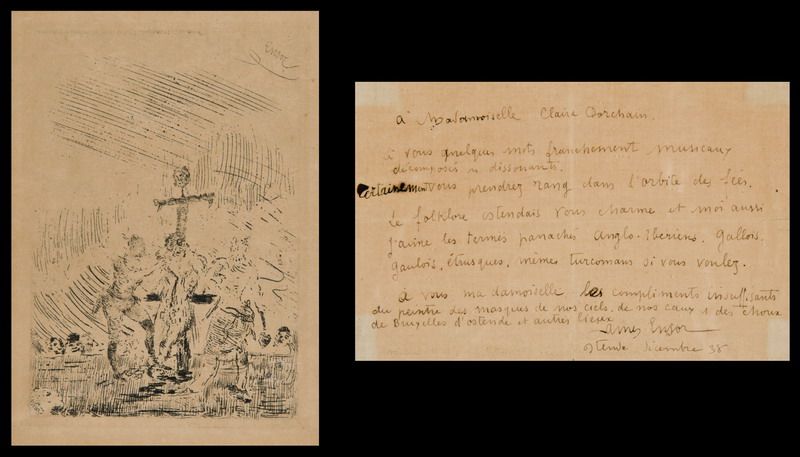 Ensor
à Mademoiselle Claire Dorchain.
à vous quelques mots franchement musicaux
décomposés dissonants.
certainement vous prendrez rang dans l'orbite des fées.
Le folklore ostendais vous charme et moi aussi
j'aime les termes panachés anglo-Iberiens, Gallois,
Gaulois, étrusques, mêmes turcomans si vous voulez.
à vous mademoiselle, les compliments insuffisants
du peintre des masques de nos ciels, de nos eaux des choux
de Bruxelles d'ostende et autres lieux
James Ensor
Ostende décembre 38